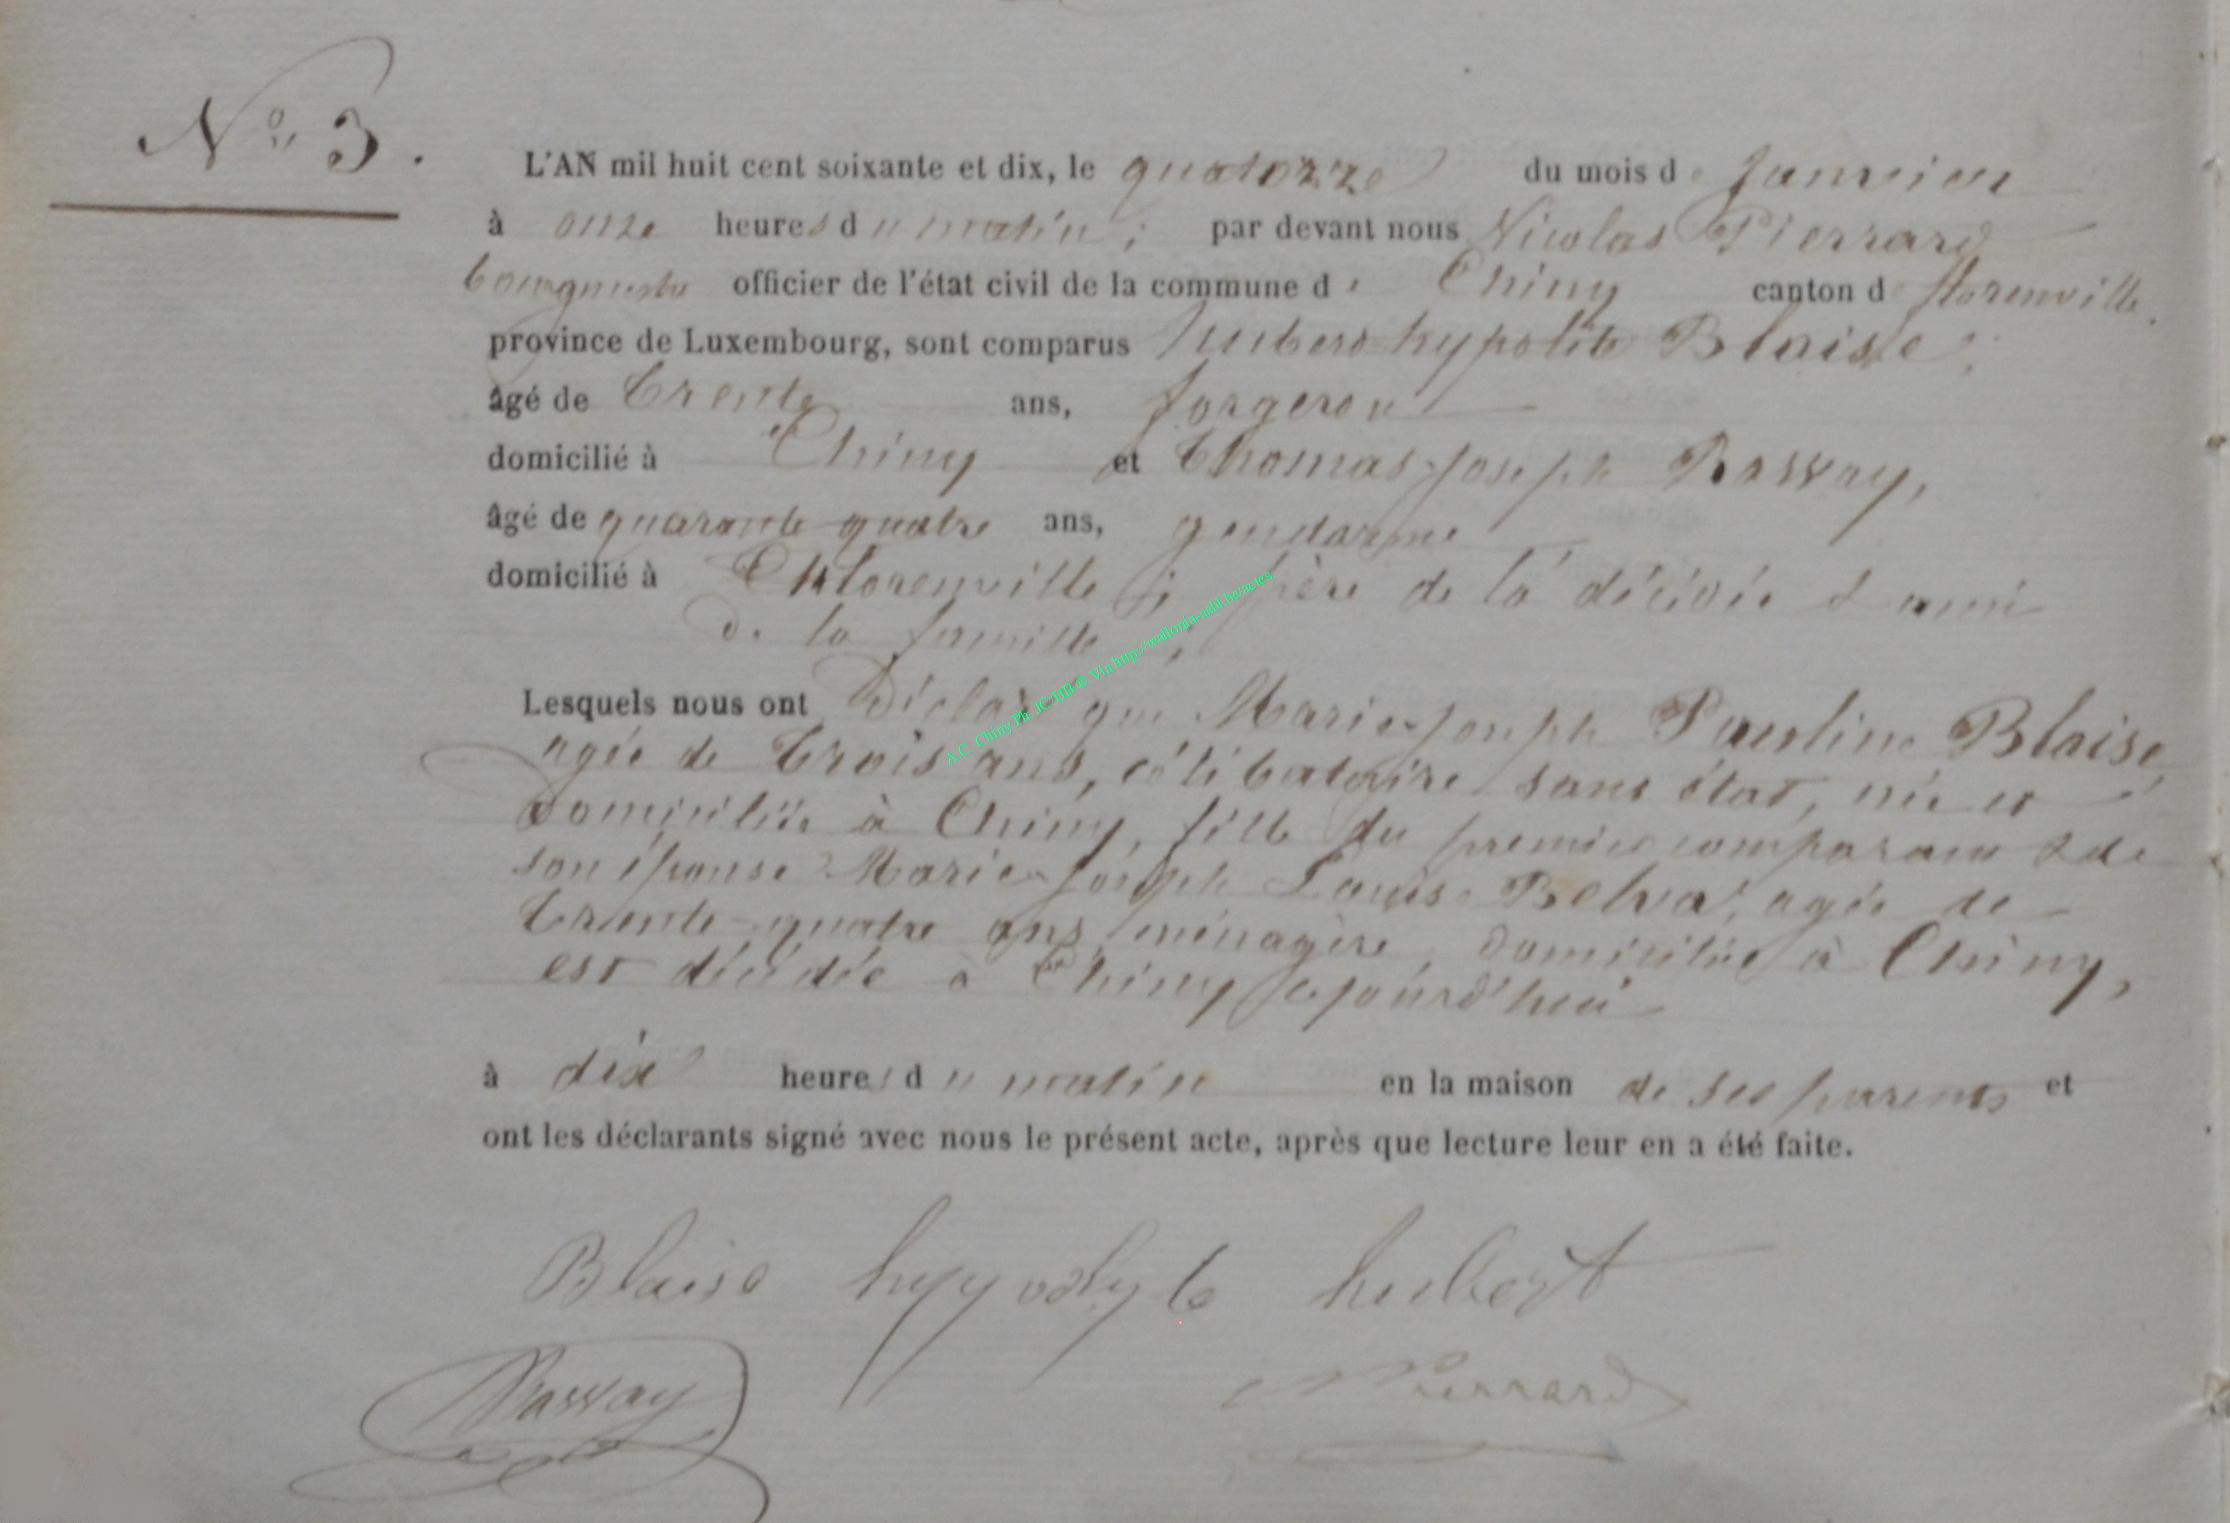 N° 3.
L'AN mil huit cent soixante et dix, le quatorze du mois de Janvier
à onze heures du matin; par devant nous Nicolas Pierrard
bourgmestre officier de l'état civil de la commune de Chiny canton de florenville.
province de Luxembourg, sont comparus hubert hypolite Blaise,
âgé de trente ans, forgeron
domicilié à Chiny et Thomas Joseph
âgé de quarante quatre ans, gendarme
domicilié à florenville; père de la décédée & ami
de la famille;
Lesquels nous ont Déclaré que Marie-Joseph Pauline Blaise,
agée de trois ans, célibataire sans état, née et
domiciliée à Chiny, fille du premier comparant & de
son épouse Marie-Joseph Louise Belva, agée de
trente-quatre ans, ménagère, domiciliée à Chiny,
est décédée à Chiny cejourd'hui
à dix heures du matin en la maison de ses parents et
ont les déclarants signé avec nous le présent acte, après que lecture leur en a été faite.
Blaise hypolyte hubert
NPierrard
A.C. Chiny Ph JC-HB © Via http://wallonia-asbl.be/actes